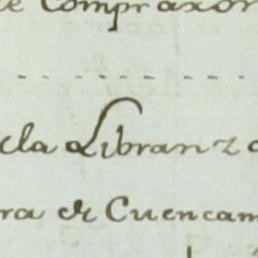 e Compraron
ela Libranza
ra el Cuencam